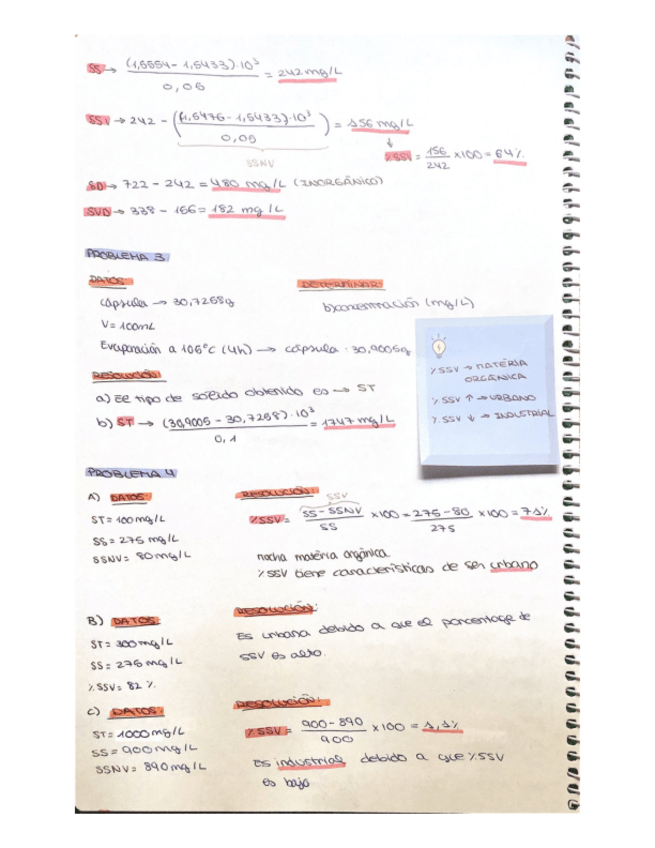 SS → (1,5554 - 1,5433)·10³ / 0,05 = 242 mg/L
SSV → 242 - ((1,5476 - 1,5433)·10³ / 0,05) = 156 mg/L
SSNV
%SSV = 156/242 x100 = 64%.
SD → 722 - 242 = 480 mg/L (INORGÁNICO)
SVD → 338 - 156 = 182 mg/L
PROBLEMA 3
DATOS:
cápsula → 30,7258g
V = 100mL
Evaporación a 105°C (4h) → cápsula: 30,9005g
DETERMINAR:
b) concentración (mg/L)
RESOLUCIÓN:
a) El tipo de sólido obtenido es → ST
b) ST → (30,9005 - 30,7258)·10³ / 0,1 = 1747 mg/L
%SSV → MATERIA
ORGÁNICA
%SSV ↑ → URBANO
%SSV ↓ → INDUSTRIAL
PROBLEMA 4
A) DATOS:
ST = 100 mg/L
SS = 275 mg/L
SSNV = 80 mg/L
RESOLUCIÓN:
SSV
%SSV = (SS - SSNV)/SS x100 = (275 - 80)/275 x100 = 71%
mcha materia orgánica
%SSV tiene características de ser urbano
B) DATOS:
ST = 300 mg/L
SS = 275 mg/L
%SSV = 82 %.
RESOLUCIÓN:
Es urbana debido a que el porcentage de
SSV es alto.
C) DATOS:
ST = 1000 mg/L
SS = 900 mg/L
SSNV = 890 mg/L
RESOLUCIÓN:
%SSV = (900 - 890)/900 x100 = 1,1%
Es industrial debido a que %SSV
es bajo